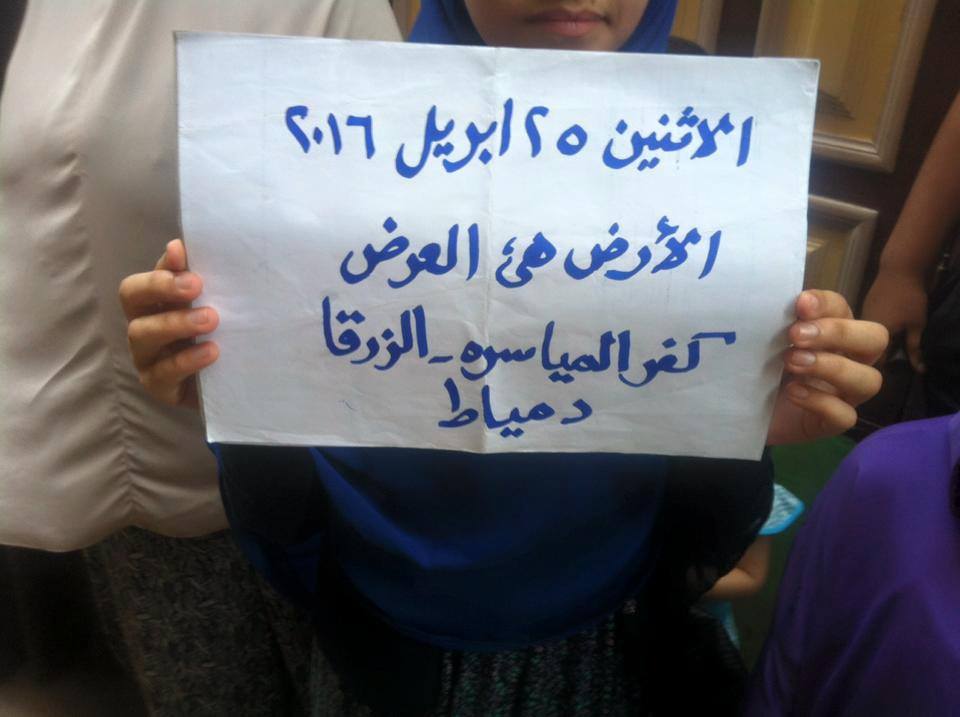 الاثنين ٢٥ ابريل ٢٠١٦
الأرض هئ العرض
كفر المياسره - الزرقا
دمياط